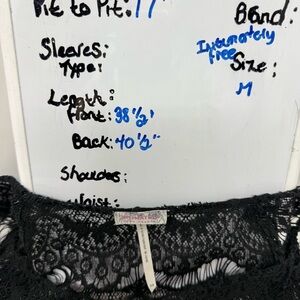 Pit to Pit: 17"
Brand:
Intimately
free
Sleeves:
Type:
Size:
M
Length:
Front: 38 ½"
Back: 40 ½"
Shoulders:
Waist: